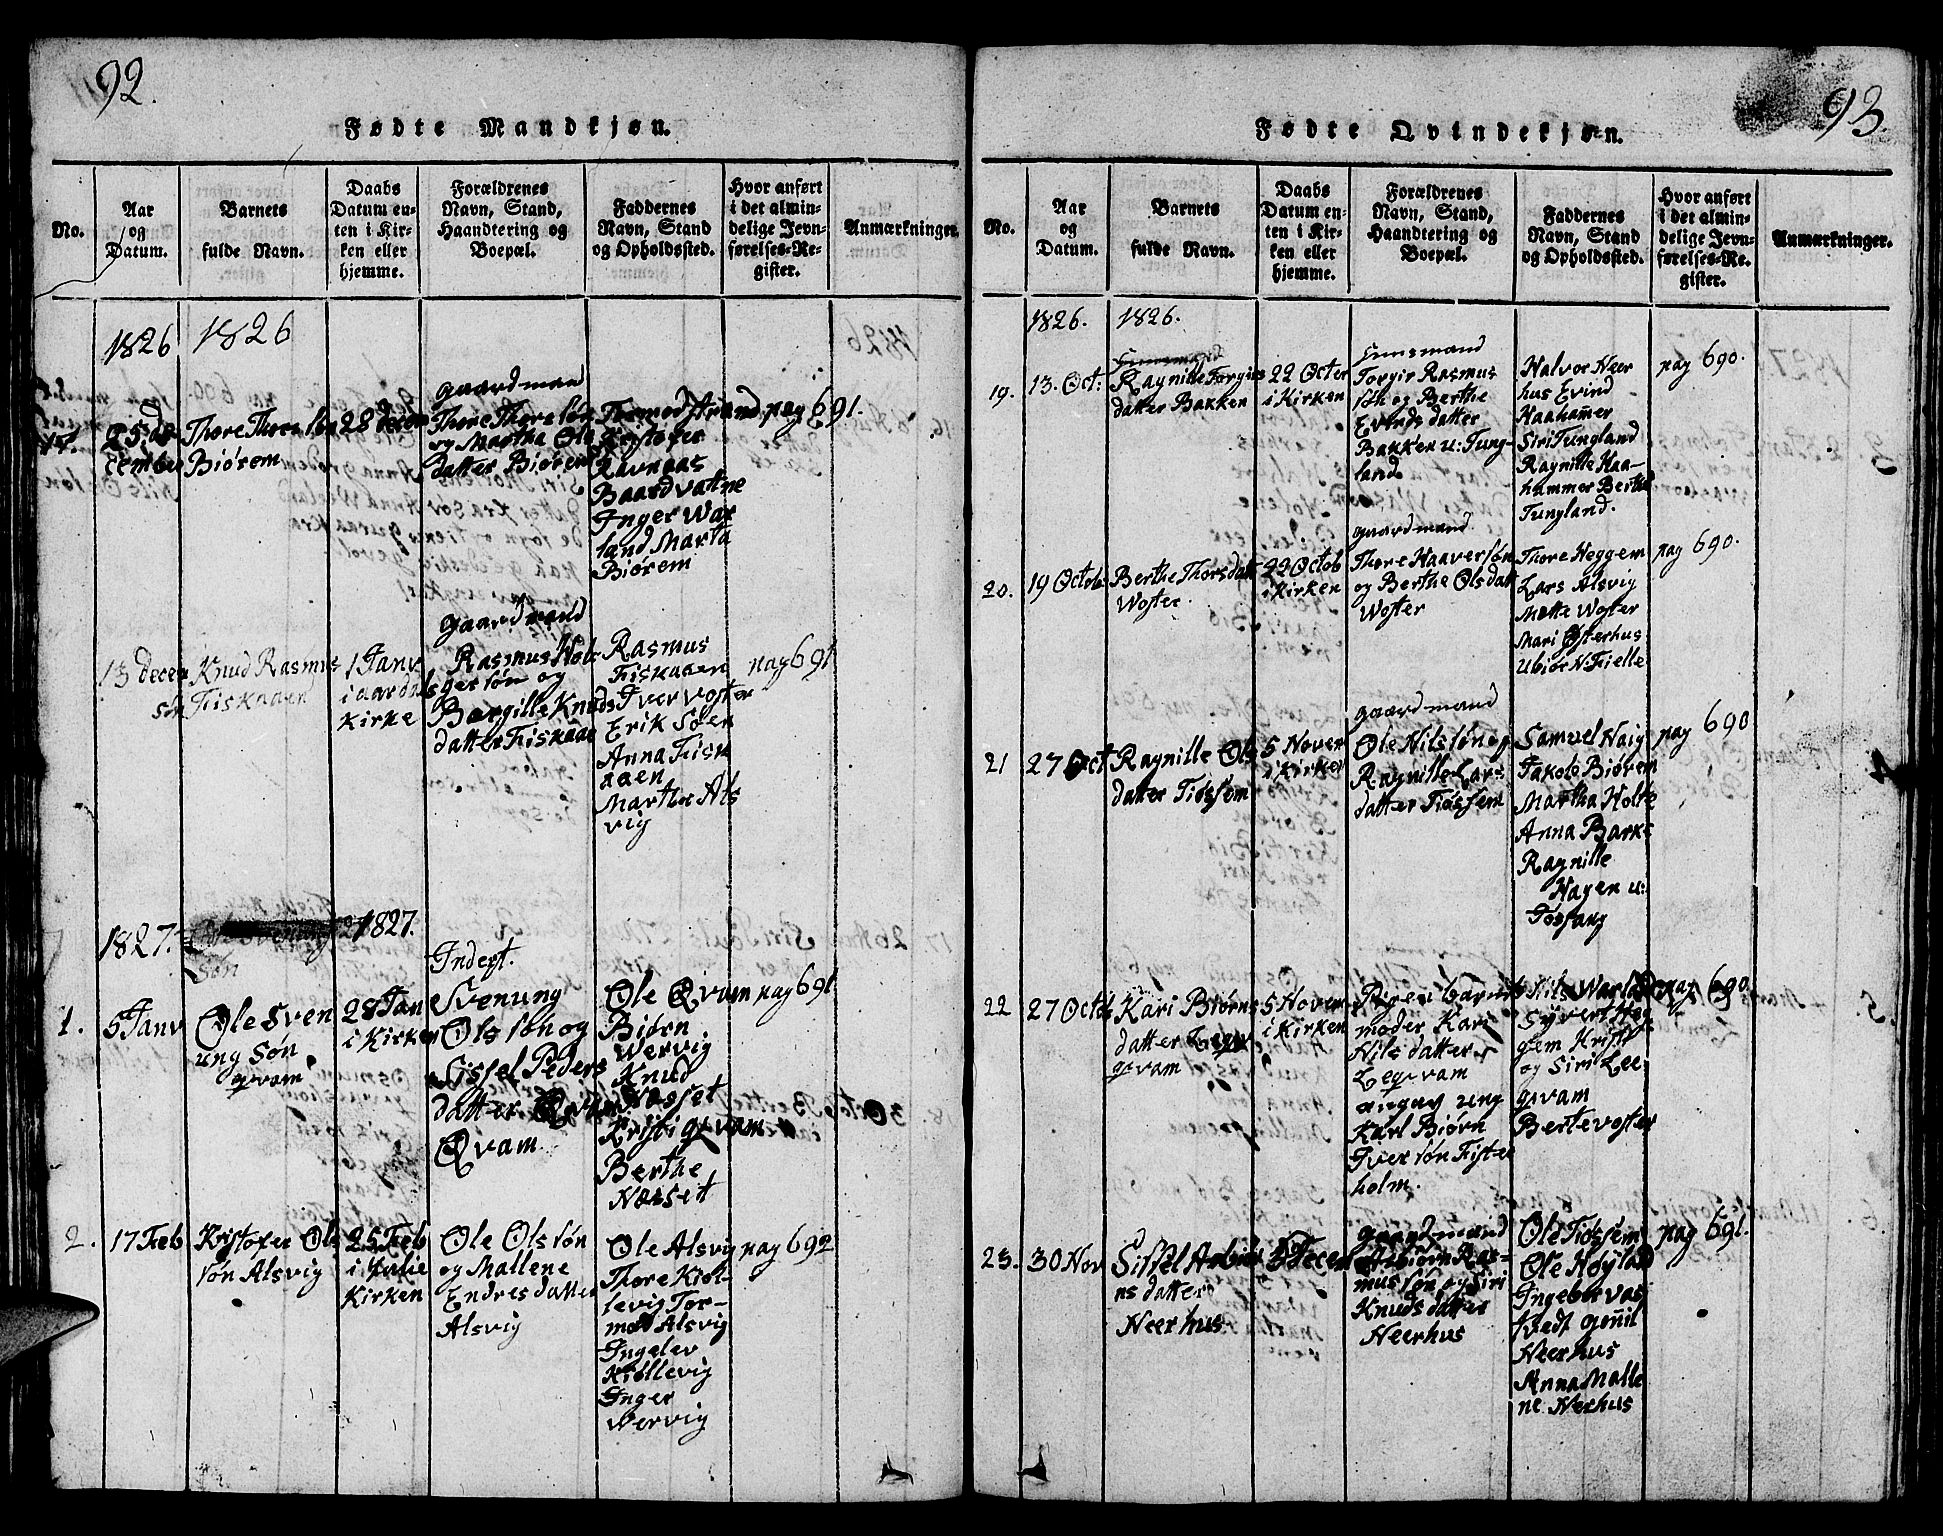 92.
Fødte Mandkjøn.
No.
Aar
og
Datum.
Barnets
fulde Navn.
Daabs
Datum en-
ten i Kir-
ken eller
hjemme.
Forældrenes
Navn, Stand,
Haandtering og
Boepæl.
Faddernes
Navn, Stand
og Opholdssted.
Hvor anført
i det almin-
delige Jevn-
førelses-Re-
gister.
Anmærkninger.
1826
1826
25 de
cember
Thore Thore søn
Biørem
28 decem
gaardmand
Thore Thore søn
og Martha Ols
datter Biørem
Thormod Strand
Kristofer
Ravnaas
Baard vatne
Inger War
land Marta
Biørem
pag 691.
13 decem
Knud Rasmus
søn Fiskaaen
1 Janv
i aardals
Kirke
gaardmand
Rasmus Hol-
ger søn og
Borgille Knuds
datter Fiskaae
Rasmus
Fiskaaen
Iver voster
Erik Søen
Anna Fisk
aaen
Martha Als
vig
pag 691
1827.
1827.
søn
1.
5 Janv
Ole Sven
ung søn
qvam
28 Jan
i Kirken
Inderst.
Svenung
Ols søn og
Sissel Peders
datter Qvam
Qvam
Ole Qvam
Biørn
Wervig
Knud
Næsset
Kristi qvam
Berthe
Næsset
pag 691
2.
17 Feb
Kristofer Ols
søn Alsvig
25 Feb
i Kirken
Ole Ols søn
og Mallene
Endres datter
Alsvig
Ole Alsvig
Thore Kiøl-
levig Tor-
mod Alsvig
Ingelev
Kiøllevig
Inger
Wervig
pag 692
93.
Fødte Qvindekjøn.
No.
Aar
og
Datum.
Barnets
fulde Navn.
Daabs
Datum en-
ten i Kir-
ken eller
hjemme.
Forældrenes
Navn, Stand,
Haandtering og
Boepæl.
Faddernes
Navn, Stand
og Opholdssted.
Hvor anført
i det almin-
delige Jevn-
førelses-Re-
gister.
Anmærkninger.
1826.
1826.
19.
13. Oct:
Ragnille Torgirs
datter Bakken
22 Octer
i Kirken
Huusmand
Torgir Rasmus
søn og Berthe
Evinds datter
Bakken u: Tung-
land
Halvor Neer
hus Evind
Haahamer
Siri Tungland
Ragnille Haa-
hammer Berthe
Tungland.
pag 690.
20.
19 Octob
Berthe Thorsdatt
Woster
22 Octob
i Kirken
gaardmand
Thore Haaver søn
og Berthe Olsdatt
Woster
Thore Heggem
Lars Alsvig
Mette Woster
Mari Østerhus
Ubiør N. Fielle
pag 690.
21
27 Oct
Ragnille Ols
datter Tiøssem
5 Nover
i Kirken
gaardmand
Ole Nilssøn og
Ragnille Lars
datter Tiøssem
Samuel Haig
Jakob Biørem
Martha Holte
Anna Barke
Ragnille
Hagen u:
Tøsfang
pag 690
22
27 Octo
Kari Biørns
datter Leqe
qvam
5 Novem
i Kirken
Pigen barne
moder Kari
Nils datter
Leqevam
angav ung
Karl Biørn
Iver søn Fister
holm.
Nils Warland
Syvert Heg
gem Kristi
og Siri Lee
qvam
Berte voster
pag 690
23.
30 Nov
Sissel Asbiør
ns datter
Neerhus
3 Decem
gaardmand
Asbiørn Ras-
mus søn og Siri
Knuds datter
Neerhus
Ole Tiøssem
Ole Høyland
Ingebor vas
tvedt gonil
Neerhus
Anna Malle
ne Neerhus
pag 691.